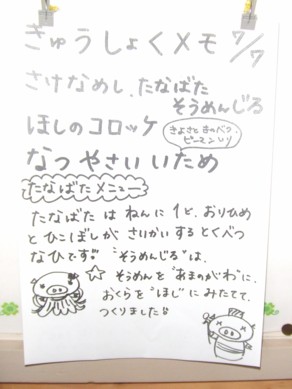 きゅうしょくメモ 7/7
さけなめし、たなばた
そうめんじる
ほしのコロッケ
なつやさいいため
たなばたメニュー
たなばたは ねんに1ど、おりひめ
とひこぼしが さいかいするとくべつ
なひです!!
"そうめんじる"は、
そうめんを"あまのがわ"に、
おくらを"ほし"にみたてて、
つくりました♪